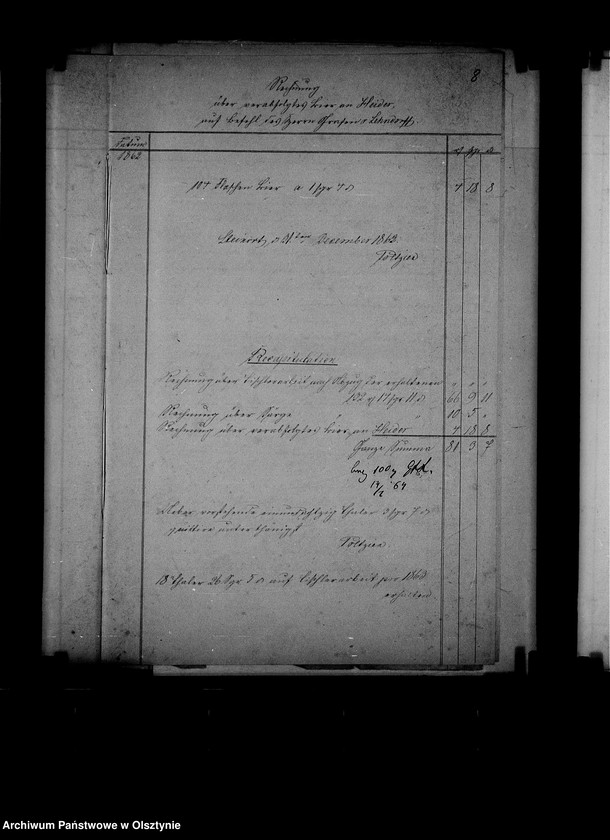 8
Rechnung
über verabfolgtes Bier an Heider,
auf Befehl des Herrn Grafen v Lehndorff.
Datum
1862
104 Flaschen Bier a 1 sgr 4 d 4 18 8
Steinort, d 31ten December 1863.
Rechnung über Tischlerarbeit nach Abzug der erhaltenen " " "
132 rf 17 sgr 11 d 66 9 11
Rechnung über Särge " " 10 5 "
Rechnung über verabfolgtes Bier an Heider 4 18 8
Ganze Summa 81 3 7
100
14/2 64
Ueber vorstehende einundachtzig Thaler 3 sgr 7 d
quittire unterthänigst
18 Thaler 26 Sgr 5 d auf Tischlerarbeit pro 1863
erhalten
Archiwum Państwowe w Olsztynie